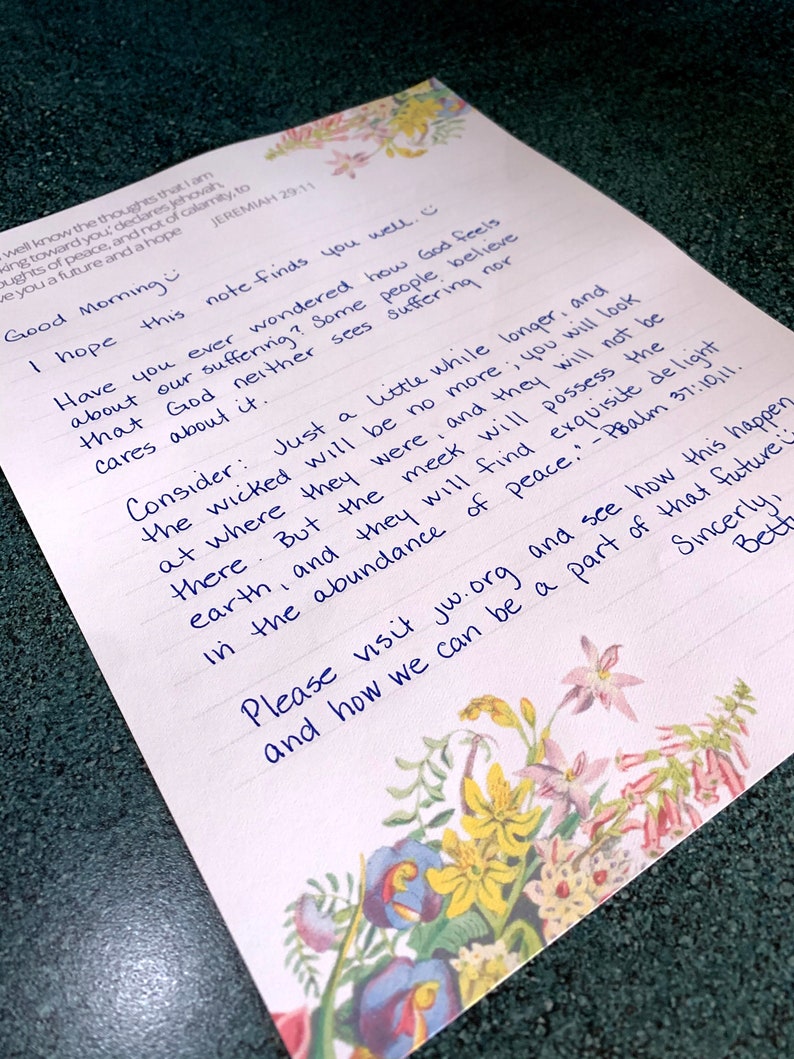 well know the thoughts that I am
king toward you,' declares Jehovah,
oughts of peace, and not of calamity, to
ve you a future and a hope
JEREMIAH 29:11
Good Morning☺
I hope this note finds you well.☺
Have you ever wondered how God feels
about our suffering? Some people believe
that God neither sees suffering nor
cares about it.
Consider: Just a little while longer, and
the wicked will be no more; you will look
at where they were, and they will not be
there. But the meek will possess the
earth, and they will find exquisite delight
in the abundance of peace." -Psalm 37:10,11.
Please visit jw.org and see how this happen
and how we can be a part of that future☺
Sincerely,
Bett